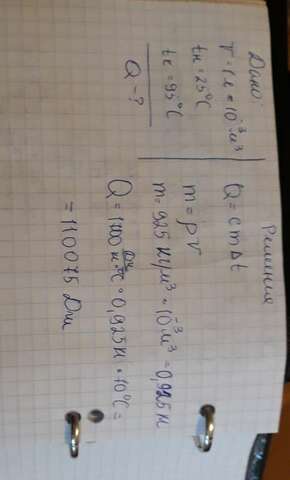 Дано:
V = 1 л = 10⁻³ м³
tн = 25°C
tк = 95°C
Q - ?
Решения
Q = cmΔt
m = ρV
m = 925 кг/м³ · 10⁻³ м³ = 0,925 кг
Q = 1700 Дж/кг·°C · 0,925 кг · 70°C =
= 110075 Дж